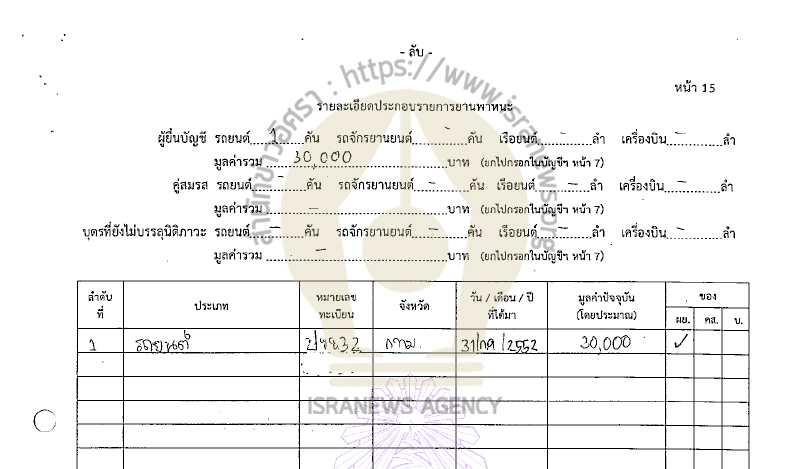 - ลับ -
หน้า 15
รายละเอียดประกอบรายการยานพาหนะ
ผู้ยื่นบัญชี รถยนต์ 1 คัน รถจักรยานยนต์ - คัน เรือยนต์ - ลำ เครื่องบิน - ลำ
มูลค่ารวม 30,000 บาท (ยกไปกรอกในบัญชีฯ หน้า 7)
คู่สมรส รถยนต์ - คัน รถจักรยานยนต์ - คัน เรือยนต์ - ลำ เครื่องบิน - ลำ
มูลค่ารวม - บาท (ยกไปกรอกในบัญชีฯ หน้า 7)
บุตรที่ยังไม่บรรลุนิติภาวะ รถยนต์ - คัน รถจักรยานยนต์ - คัน เรือยนต์ - ลำ เครื่องบิน - ลำ
มูลค่ารวม - บาท (ยกไปกรอกในบัญชีฯ หน้า 7)
ลำดับที่ ประเภท หมายเลขทะเบียน จังหวัด วัน / เดือน / ปี ที่ได้มา มูลค่าปัจจุบัน (โดยประมาณ) ของ
ผย. คส. บ.
1 รถยนต์ กทม. 31/กค/2552 30,000 ✓
สำนักข่าวอิศรา : https://www.isranews.org
ISRANEWS AGENCY